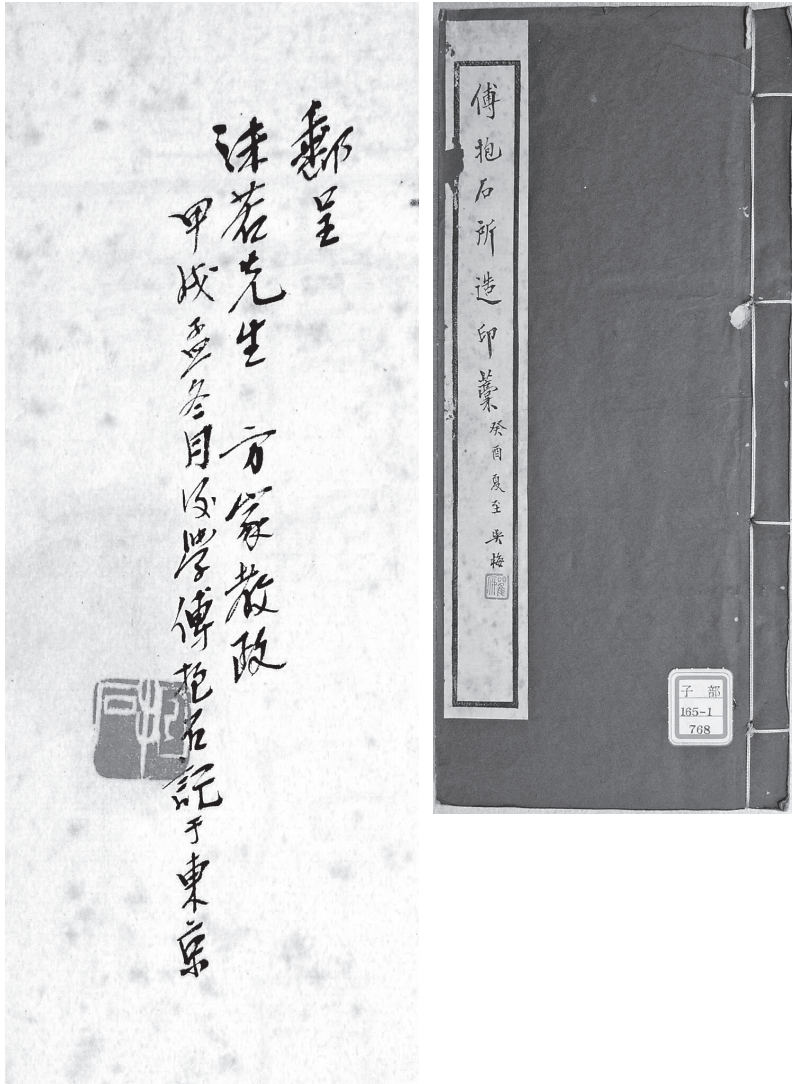 郵呈
沫若先生 方家教政
甲戌孟冬月後學傅抱石記于東京
抱石
傅抱石所造印藁
癸酉夏至 吳梅
子部
165-1
768